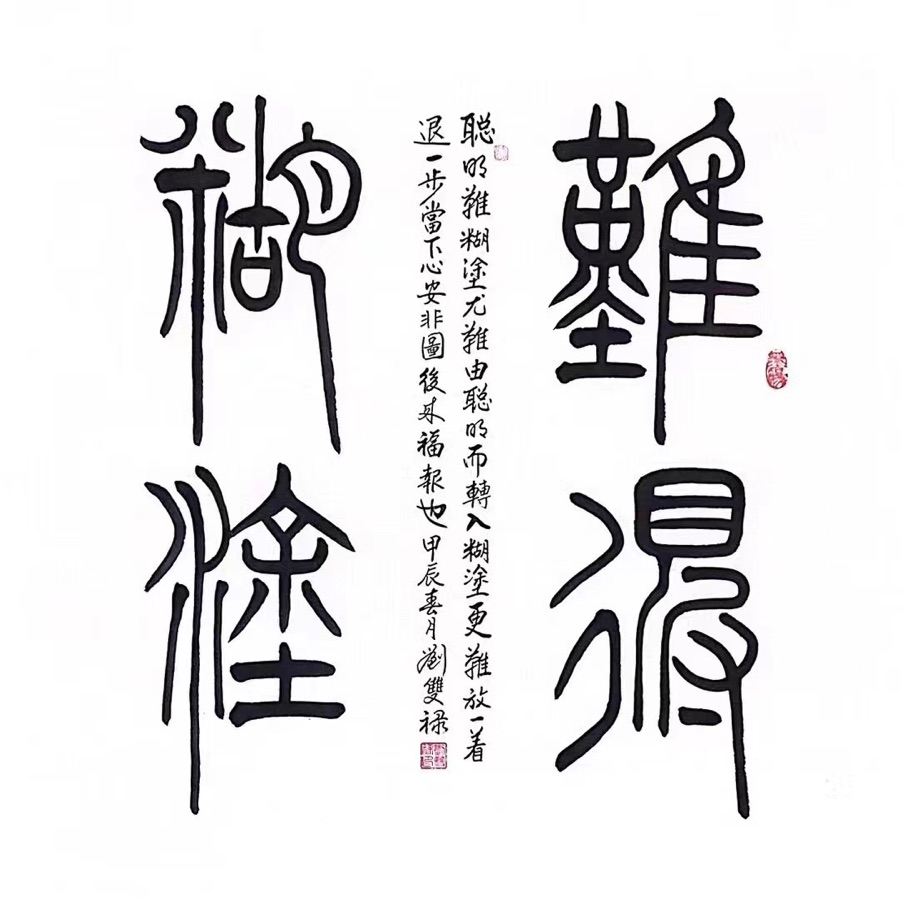 難得
聰明難糊塗尤難由聰明而轉入糊塗更難放一着
退一步當下心安非圖後来福報也甲辰春月劉雙禄
糊塗